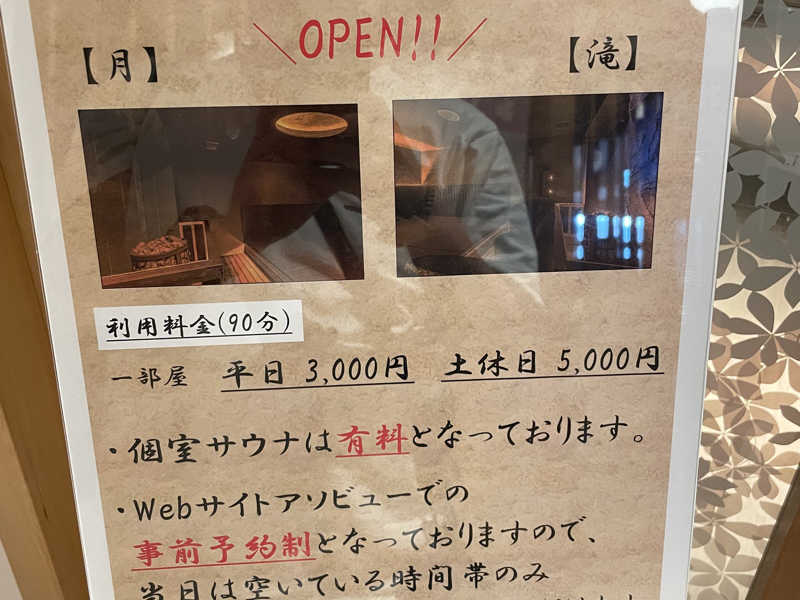 ＼OPEN!!／
【月】 【滝】
利用料金(90分)
一部屋 平日 3,000円 土休日 5,000円
・個室サウナは有料となっております。
・Webサイトアソビューでの
事前予約制となっておりますので、
当日は空いている時間帯のみ